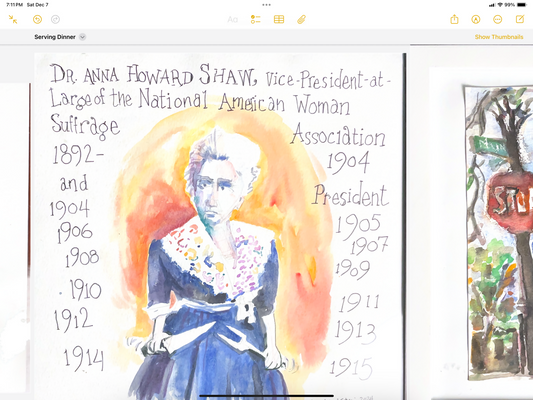 7:11 PM Sat Dec 7
99%
Aa
Serving Dinner
Show Thumbnails
DR. ANNA HOWARD SHAW, Vice-President-at-
Large of the National American Woman
Suffrage Association
1892- 1904
and President
1904 1905
1906 1907
1908 1909
1910 1911
1912 1913
1914 1915
STO